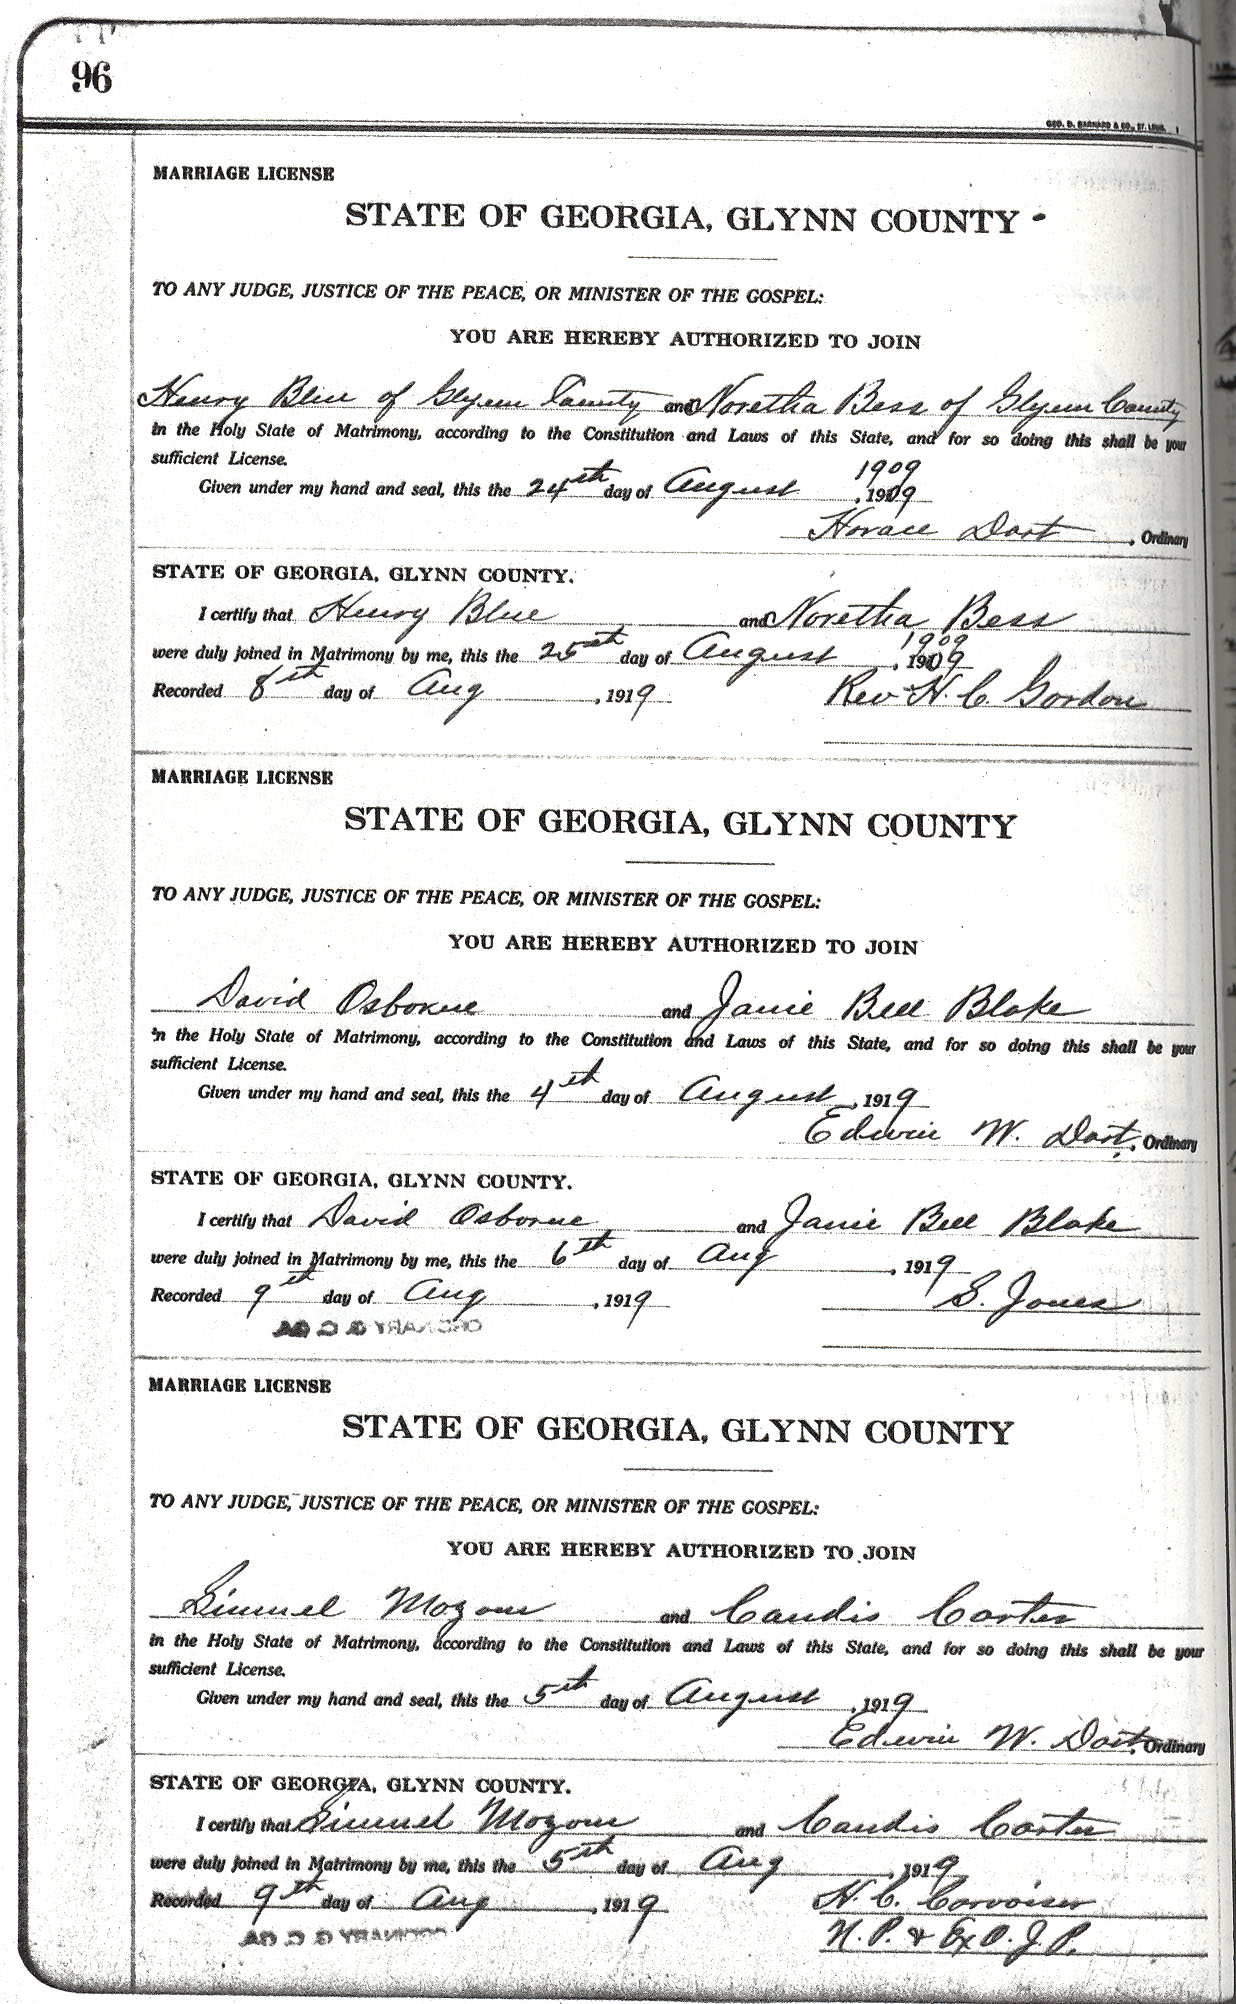 96
GEO. D. BARNARD & CO., ST. LOUIS.
MARRIAGE LICENSE
STATE OF GEORGIA, GLYNN COUNTY
TO ANY JUDGE, JUSTICE OF THE PEACE, OR MINISTER OF THE GOSPEL:
YOU ARE HEREBY AUTHORIZED TO JOIN
Henry Blue of Glynn County and Noretha Bess of Glynn County
in the Holy State of Matrimony, according to the Constitution and Laws of this State, and for so doing this shall be your
sufficient License.
1909
Given under my hand and seal, this the 24th day of August, 1909
Horace Dart, Ordinary
STATE OF GEORGIA, GLYNN COUNTY.
I certify that Henry Blue and Noretha Bess
1909
were duly joined in Matrimony by me, this the 25st day of August, 1909
Recorded 8th day of Aug, 1919 Rev H. C. Gordon
MARRIAGE LICENSE
STATE OF GEORGIA, GLYNN COUNTY
TO ANY JUDGE, JUSTICE OF THE PEACE, OR MINISTER OF THE GOSPEL:
YOU ARE HEREBY AUTHORIZED TO JOIN
David Osborne and Janie Bell Blake
in the Holy State of Matrimony, according to the Constitution and Laws of this State, and for so doing this shall be your
sufficient License.
Given under my hand and seal, this the 4th day of August, 1919
Edwin W. Dart, Ordinary
STATE OF GEORGIA, GLYNN COUNTY.
I certify that David Osborne and Janie Bell Blake
were duly joined in Matrimony by me, this the 6th day of Aug, 1919
Recorded 9th day of Aug, 1919 S. Jones
ORDINARY G. C. GA.
MARRIAGE LICENSE
STATE OF GEORGIA, GLYNN COUNTY
TO ANY JUDGE, JUSTICE OF THE PEACE, OR MINISTER OF THE GOSPEL:
YOU ARE HEREBY AUTHORIZED TO JOIN
Simuel and Candis Carter
in the Holy State of Matrimony, according to the Constitution and Laws of this State, and for so doing this shall be your
sufficient License.
Given under my hand and seal, this the 5th day of August, 1919
Edwin W. Dart, Ordinary
STATE OF GEORGIA, GLYNN COUNTY.
I certify that Simuel and Candis Carter
were duly joined in Matrimony by me, this the 5th day of Aug, 1919
Recorded 9th day of Aug, 1919 H. C.
N. P. & Ex O. J. P.
ORDINARY G. C. GA.